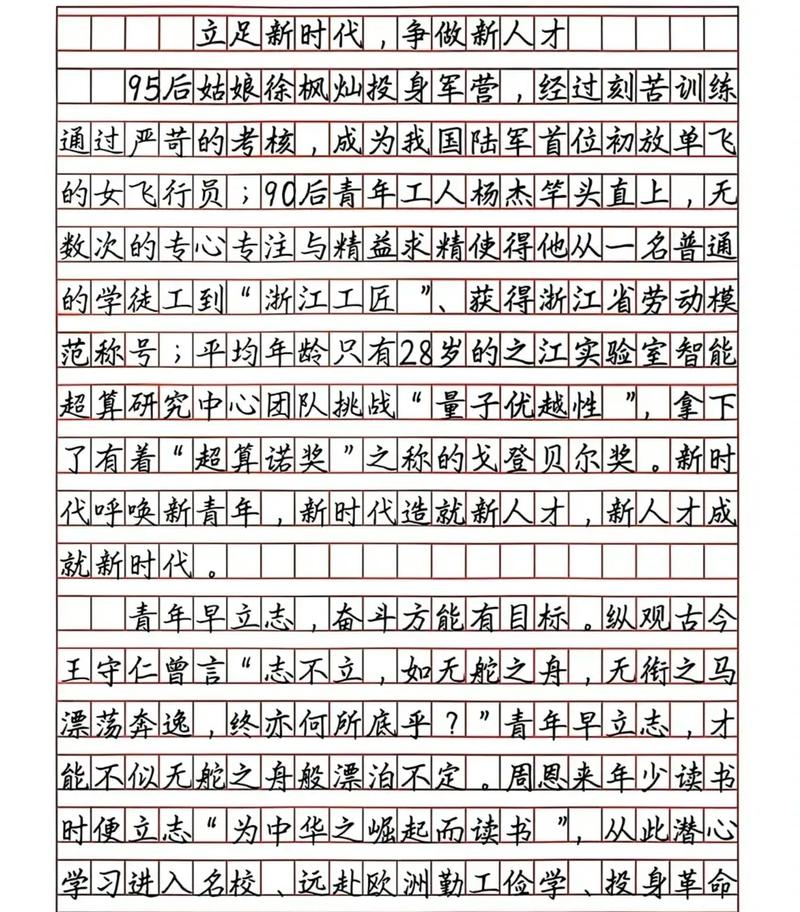 立足新时代，争做新人才
95后姑娘徐枫灿投身军营，经过刻苦训练
通过严苛的考核，成为我国陆军首位初放单飞
的女飞行员；90后青年工人杨杰竿头直上，无
数次的专心专注与精益求精使得他从一名普通
的学徒工到“浙江工匠”、获得浙江省劳动模
范称号；平均年龄只有28岁的之江实验室智能
超算研究中心团队挑战“量子优越性”，拿下
了有着“超算诺奖”之称的戈登贝尔奖。新时
代呼唤新青年，新时代造就新人才，新人才成
就新时代。
青年早立志，奋斗方能有目标。纵观古今
王守仁曾言“志不立，如无舵之舟，无衔之马
漂荡奔逸，终亦何所底乎？”青年早立志，才
能不似无舵之舟般漂泊不定。周恩来年少读书
时便立志“为中华之崛起而读书”，从此潜心
学习进入名校、远赴欧洲勤工俭学、投身革命